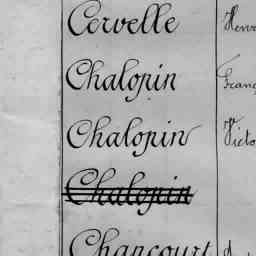 Cervelle Henri
Chalopin Franç
Chalopin Victo
Chalopin
Chancourt